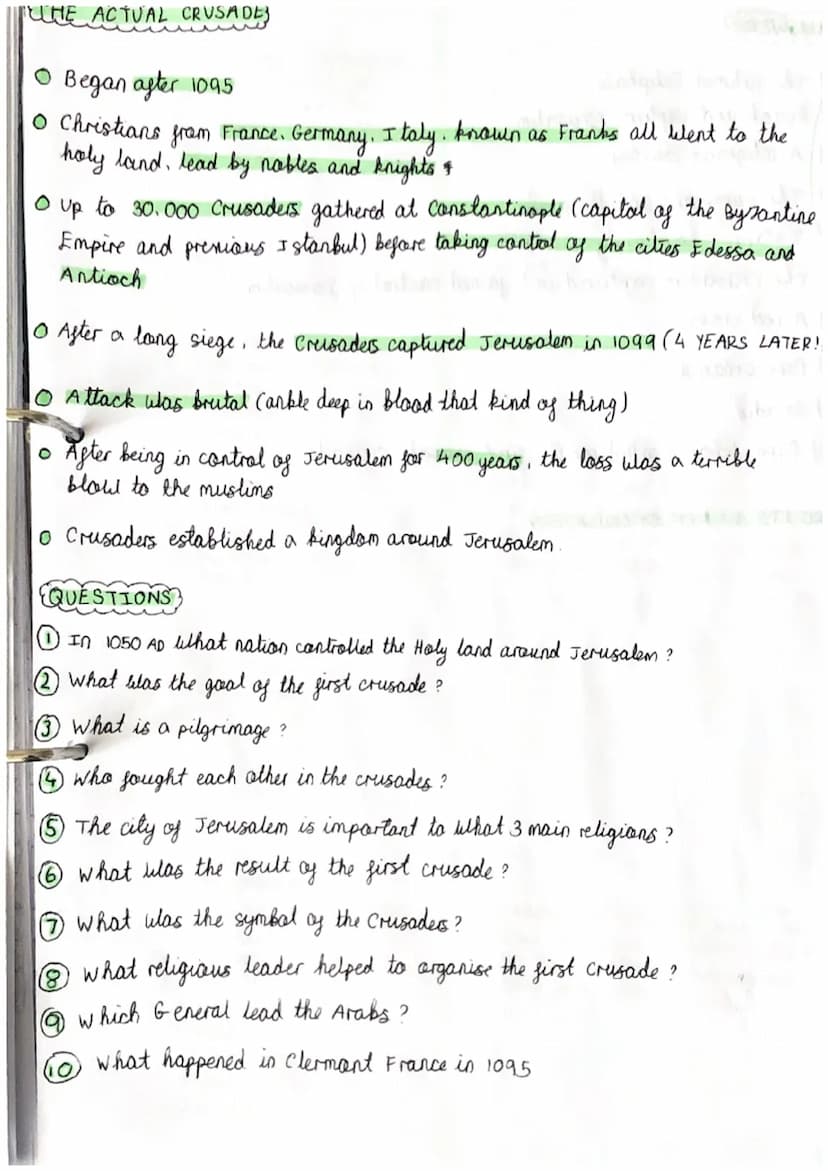 THE ACTUAL CRUSADES
Began after 1095
Christians from France, Germany, Italy, known as Franks all went to the
holy land, lead by nobles and knights
Up to 30,000 Crusaders gathered at Constantinople (capital of the Byzantine
Empire and previous Istanbul) before taking control of the cities Edessa and
Antioch
After a long siege, the Crusaders captured Jerusalem in 1099 (4 YEARS LATER!
Attack was brutal (ankle deep in blood that kind of thing)
After being in control of Jerusalem for 400 years, the loss was a terrible
blow to the muslims
Crusaders established a kingdom around Jerusalem.
QUESTIONS
1 In 1050 AD what nation controlled the Holy land around Jerusalem?
2 What was the goal of the first crusade?
3 What is a pilgrimage?
4 Who fought each other in the crusades?
5 The city of Jerusalem is important to what 3 main religions?
6 What was the result of the first crusade?
7 What was the symbol of the Crusades?
8 What religious leader helped to organise the first crusade?
9 Which General lead the Arabs?
10 What happened in Clermont France in 1095